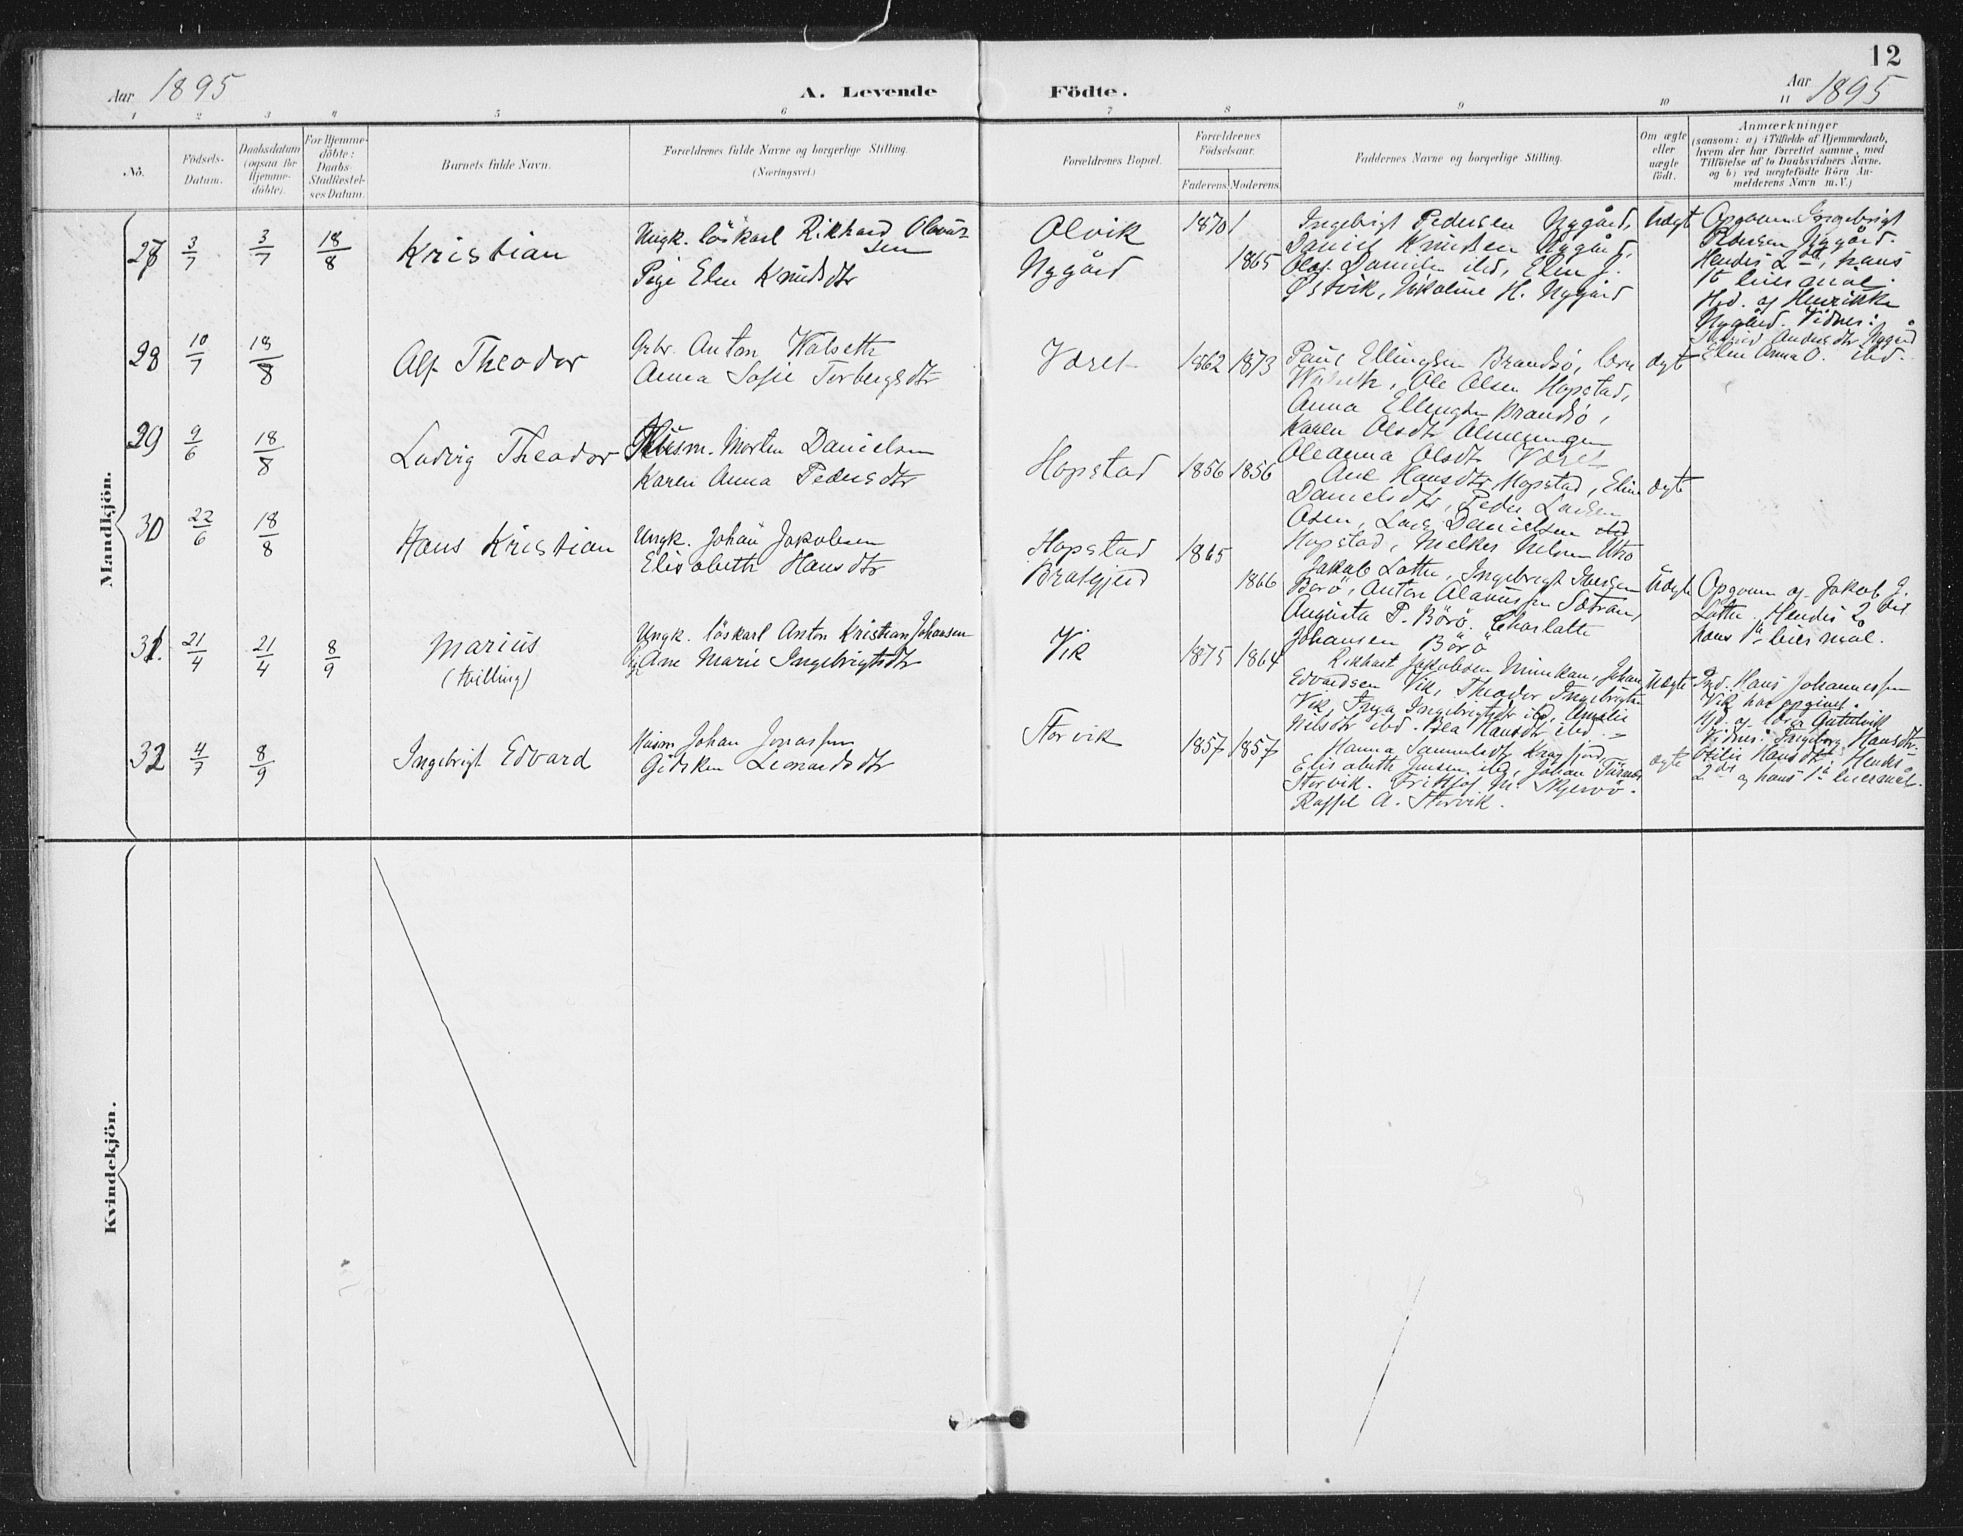 12
Aar 1895
A. Levende Födte.
Aar 1895
1 2 3 4 5 6 7 8 9 10 11
No.
Födsels-Datum.
Daabsdatum (ogsaa for Hjemmedöbte).
For Hjemmedöbte: Daabs Stadfæstelses Datum.
Barnets fulde Navn.
Forældrenes fulde Navne og borgerlige Stilling.
(Næringsvei)
Forældrenes Bopæl.
Forældrenes Födselsaar.
Faderens. Moderens.
Faddernes Navne og borgerlige Stilling.
Om ægte eller uægte födt.
Anmærkninger
(saasom: a) i Tilfælde af Hjemmedaab,
hvem der har forrettet samme, med
Tilföielse af to Daabsvidners Navne.
og b) ved uægtefödte Börn An-
melderens Navn m.V.)
Mandkjön.
27 3/7 3/7 18/8 Kristian
Ungk. löskarl Rikhard Olaus
sen
Pige Elen Knudsdtr
Olvik
Nygård
1870
1865
Ingebrigt Pedersen Nygård,
Daniel Knudsen Nygård,
Olaf Danielsen ibd, Elen J.
Østvik, Nikoline H. Nygård
Uægt
Opgivm Ingebrigt
Pedersen Nygård.
Hendes 2det, hans
1ste leiermål.
Hjd. af Henrikke
Nygård. Vidner:
Andersdtr Nygård
Elen Anna O. ibd.
28 10/7 18/8 Alf Theodor
Gbr. Anton Walseth
Anna Sofie Torbergsdtr
Været
1862 1873
Paul Ellingsen Brandsö, lærer
Walseth, Ole Olsen Hopstad,
Anna Ellingsen Brandsö,
Karen Olsdtr Almenningen
Oleanna Olsdtr Været
ægt
29 9/6 18/8 Ludvig Theodor
Husm. Morten Danielsen
Karen Anna Pedersdtr
Hopstad
1856 1856
Ane Hansdtr Hopstad, Eline
Danielsdtr, Peder Larsen
Osen, Lars Danielsen
Hopstad, Melker Nelsen Utrö
ægt
30 22/6 18/8 Hans Kristian
Ungk. Johan Jakobsen
Elisabeth Hansdtr
Hopstad
Bratgjerd
1865
1866
Jakob Lotte, Ingebrigt Iversen
Börö, Anton Olaussen Sætran,
Augusta P. Börö, Charlotte
Johansen Börö
Uægte
Opgivm af Jakob J.
Lotte. Hendes 2det
hans 1ste leiermål.
31. 21/4 21/4 8/9 Marius
(tvilling)
Ungk. löskarl Anton Kristian Johansen
Pg Ane Marie Ingebrigtsdtr
Vik
1875 1864
Rikhart Jakobsen, Johan
Edvardsen Vik, Theodor Ingebrigtsen
Vik, Inga Ingebrigtsdtr ibd, Amalie
Nilsdtr ibd. Bea Hansdtr ibd.
Uægte
Ind. Hans Johannessen
Vik har opgivet.
Hjd. af lærer Guttelvik
Vidner: Ingeborg Hansdtr.
Otilie Hansdtr. Hendes
2det og hans 1ste leiermål.
32 4/7 8/9 Ingebrigt Edvard
Husm Johan Jonassen
Gidsken Leonardsdtr
Storvik
1857 1857
Hanna Samuelsdtr Kragfjord,
Elisabeth Jensen ibd, Johan
Storvik. Frithjof M. Skjervö.
Raffel A. Storvik.
ægte
Kvindekjön.